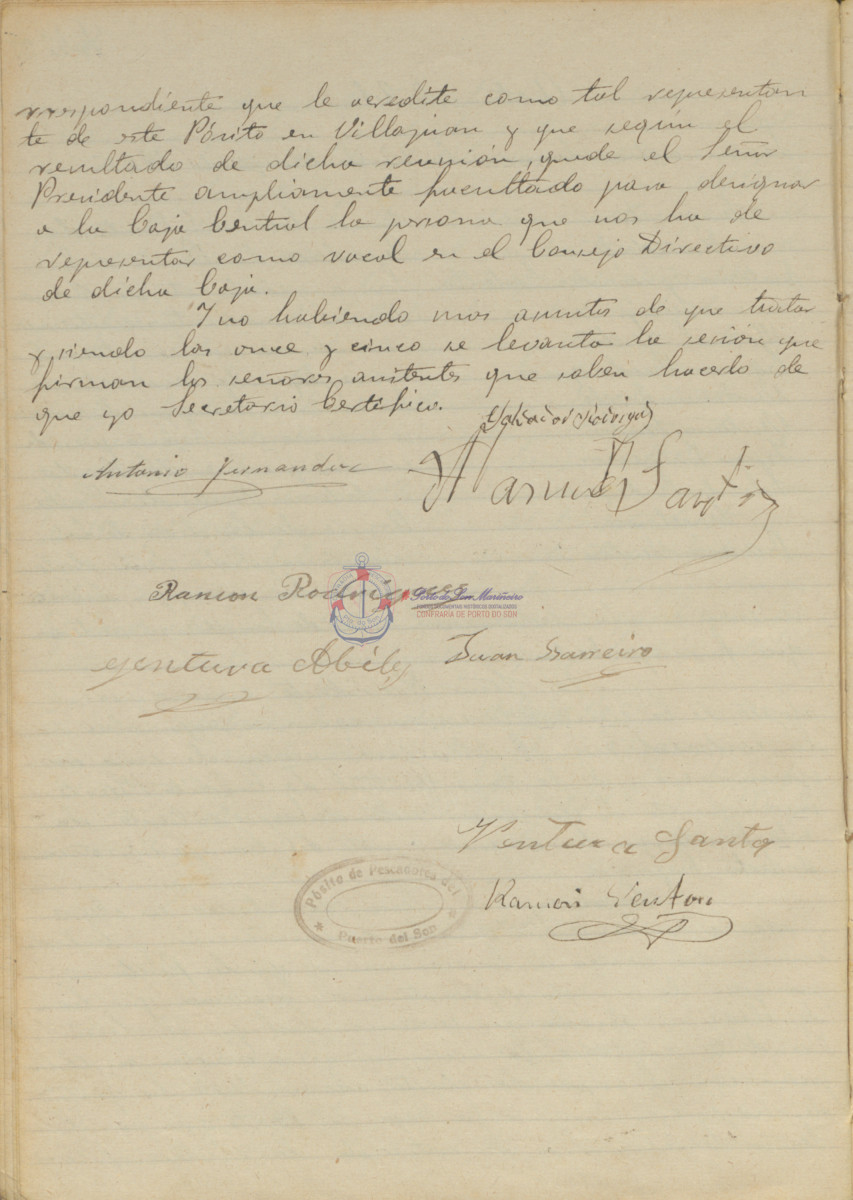 rrespondiente que le acredite como tal representan
te de este Pósito en Villajuan y que según el
resultado de dicha reunión, quede el Señor
Presidente ampliamente facultado para designar
a la Caja Central la persona que nos ha de
representar como vocal en el Consejo Directivo
de dicha Caja.
Y no habiendo mas asuntos de que tratar
y siendo las once y cinco se levanta la sesión que
firman los señores asistentes que saben hacerlo de
que yo Secretario Certifico.
Antonio Fernandez
Manuel Santos
Ramon Rodriguez
Porto do Son Mariñeiro
CONFRARÍA DE PORTO DO SON
Ventura Juan Barreiro
Ventura Santo
Pósito de Pescadores del
Puerto del Son
Ramon